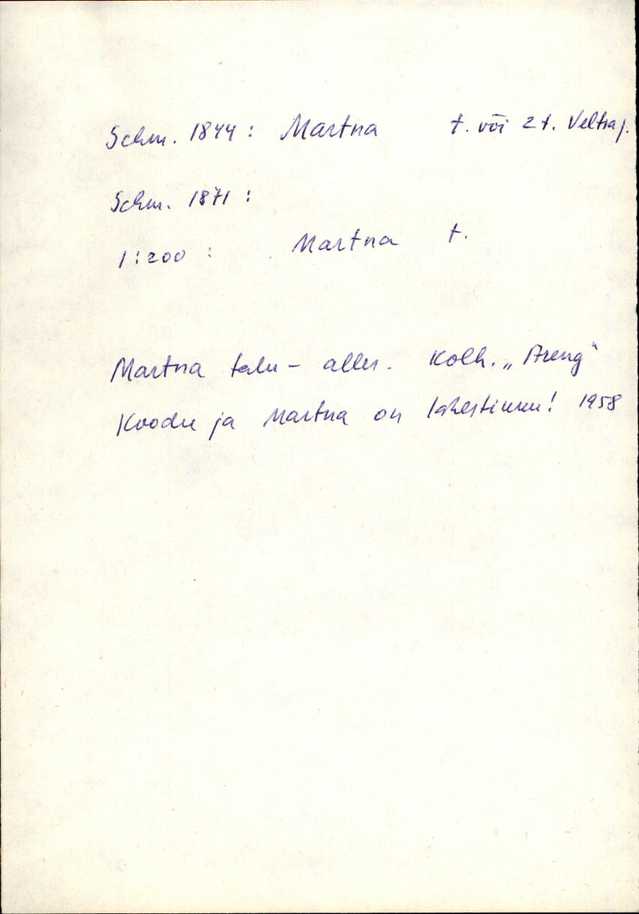 Schm. 1844: Martna t. või 2 t. Veltsa j.
Schm. 1871:
1:200: Martna t.
Martna talu – alles. Kolh. „Areng“
Koodu ja Martna on lahestikku! 1958